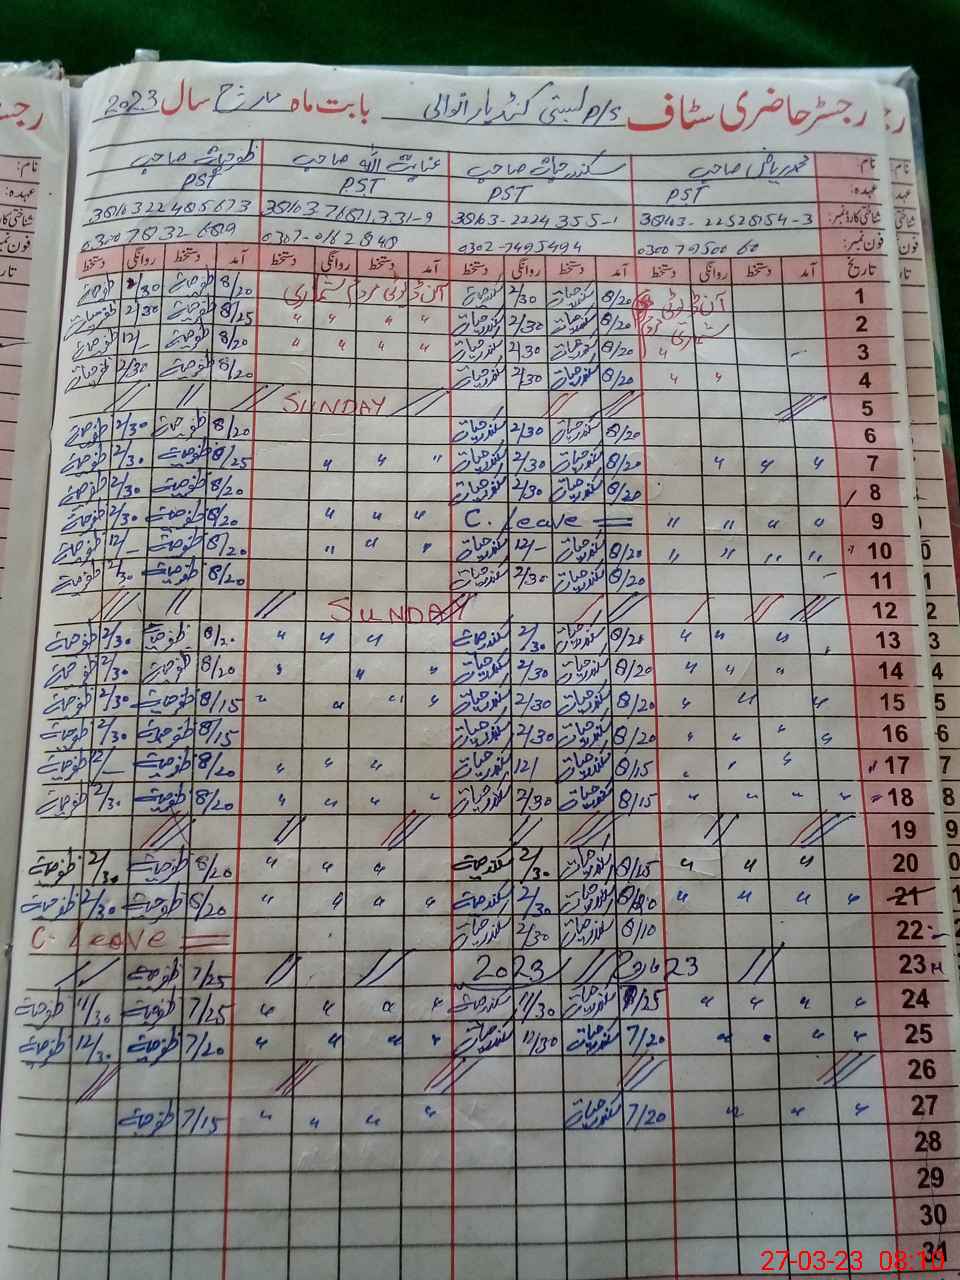 رجسٹر حاضری سٹاف P/S بستی کنڈیارانوالی بابت ماہ مارچ سال 2023
نام: محمد ریاض صاحب سکندر حیات صاحب عنایت اللہ صاحب ظفر حیات صاحب
عہدہ: PST PST PST PST
شناختی کارڈ نمبر:
فون نمبر: 0302-7495494
تاریخ آمد دستخط روانگی دستخط آمد دستخط روانگی دستخط آمد دستخط روانگی دستخط آمد دستخط روانگی دستخط
1 8/20 سکندر حیات 2/30 سکندر حیات آن ڈیوٹی مردم شماری 8/20 ظفر حیات 2/30 ظفر حیات
2 8/20 سکندر حیات 2/30 سکندر حیات " " " " 8/25 ظفر حیات 2/30 ظفر حیات
3 8/20 سکندر حیات 2/30 سکندر حیات " " " " 8/20 ظفر حیات 12/- ظفر حیات
4 " " 8/20 سکندر حیات 2/30 سکندر حیات 8/20 ظفر حیات 2/30 ظفر حیات
5 SUNDAY
6 8/20 سکندر حیات 2/30 سکندر حیات 8/20 ظفر حیات 2/30 ظفر حیات
7 " " " 8/20 سکندر حیات 2/30 سکندر حیات " " " 8/25 ظفر حیات 2/30 ظفر حیات
8 8/20 سکندر حیات 2/30 سکندر حیات 8/20 ظفر حیات 2/30 ظفر حیات
9 " " " " C. Leave = " " " 8/20 ظفر حیات 2/30 ظفر حیات
10 " " " " 8/20 سکندر حیات 12/- سکندر حیات " " " 8/20 ظفر حیات 12/- ظفر حیات
11 8/20 سکندر حیات 2/30 سکندر حیات 8/20 ظفر حیات 2/30 ظفر حیات
12 SUNDAY
13 " " " 8/20 سکندر حیات 2/30 سکندر حیات " " " 8/20 ظفر حیات 2/30 ظفر حیات
14 " " " 8/20 سکندر حیات 2/30 سکندر حیات " " " 8/20 ظفر حیات 2/30 ظفر حیات
15 " " " 8/20 سکندر حیات 2/30 سکندر حیات " " " " 8/15 ظفر حیات 2/30 ظفر حیات
16 " " " " 8/20 سکندر حیات 2/30 سکندر حیات 8/15 ظفر حیات 2/30 ظفر حیات
17 " " " 8/15 سکندر حیات 12/ سکندر حیات " " " 8/20 ظفر حیات 12/- ظفر حیات
18 " " " " 8/15 سکندر حیات 2/30 سکندر حیات " " " " 8/20 ظفر حیات 2/30 ظفر حیات
19
20 " " " 8/15 سکندر حیات 2/30 سکندر حیات " " " 8/20 ظفر حیات 2/30 ظفر حیات
21 " " " " سکندر حیات 2/30 سکندر حیات " " " " 8/20 ظفر حیات 2/30 ظفر حیات
22 8/10 سکندر حیات 2/30 سکندر حیات C. Leave =
23 2023 7/25 ظفر حیات
24 " " " " سکندر حیات 11/30 سکندر حیات " " " " 7/25 ظفر حیات 11/30 ظفر حیات
25 " " " " 7/20 سکندر حیات 12/30 سکندر حیات " " " " 7/20 ظفر حیات 12/30 ظفر حیات
26
27 " " " 7/20 سکندر حیات " " " " 7/15 ظفر حیات
28
29
30
31
27-03-23 08:10